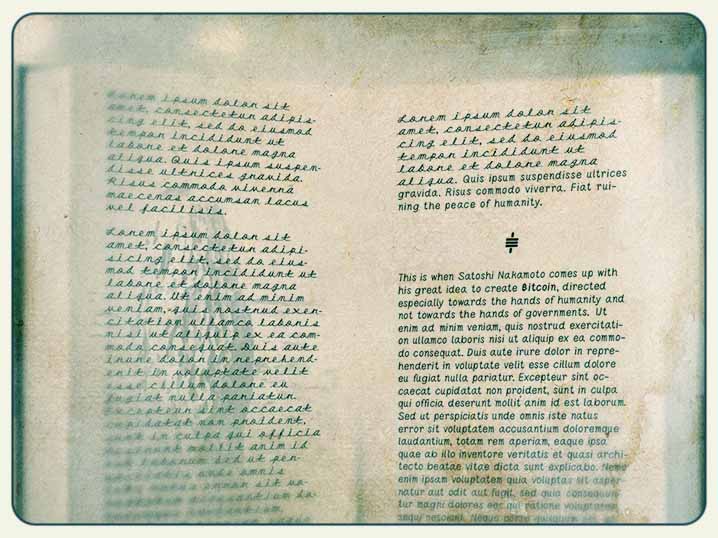 Lorem ipsum dolor sit
amet, consectetur adipis-
cing elit, sed do eiusmod
tempor incididunt ut
labore et dolore magna
aliqua. Quis ipsum suspen-
disse ultrices gravida.
Risus commodo viverra
maecenas accumsan lacus
vel facilisis.
Lorem ipsum dolor sit
amet, consectetur adipi-
sicing elit, sed do eius-
mod tempor incididunt ut
labore et dolore magna
aliqua. Ut enim ad minim
veniam, quis nostrud exer-
citation ullamco laboris
nisi ut aliquip ex ea com-
modo consequat. Duis aute
irure dolor in reprehend-
erit in voluptate velit
esse cillum dolore eu
fugiat nulla pariatur.
Excepteur sint occaecat
cupidatat non proident,
sunt in culpa qui officia
deserunt mollit anim id
est laborum sed ut per-
spiciatis unde omnis
iste natus error sit vo-
luptatem accusantium do-
Lorem ipsum dolor sit
amet, consectetur adipis-
cing elit, sed do eiusmod
tempor incididunt ut
labore et dolore magna
aliqua. Quis ipsum suspendisse ultrices
gravida. Risus commodo viverra. Fiat rui-
ning the peace of humanity.
This is when Satoshi Nakamoto comes up with
his great idea to create Bitcoin, directed
especially towards the hands of humanity and
not towards the hands of governments. Ut
enim ad minim veniam, quis nostrud exercitati-
on ullamco laboris nisi ut aliquip ex ea commo-
do consequat. Duis aute irure dolor in repre-
henderit in voluptate velit esse cillum dolore
eu fugiat nulla pariatur. Excepteur sint oc-
caecat cupidatat non proident, sunt in culpa
qui officia deserunt mollit anim id est laborum.
Sed ut perspiciatis unde omnis iste natus
error sit voluptatem accusantium doloremque
laudantium, totam rem aperiam, eaque ipsa
quae ab illo inventore veritatis et quasi archi-
tecto beatae vitae dicta sunt explicabo. Nemo
enim ipsam voluptatem quia voluptas sit asper-
natur aut odit aut fugit, sed quia consequun-
tur magni dolores eos qui ratione voluptatem
sequi nesciunt. Neque porro quisquam est